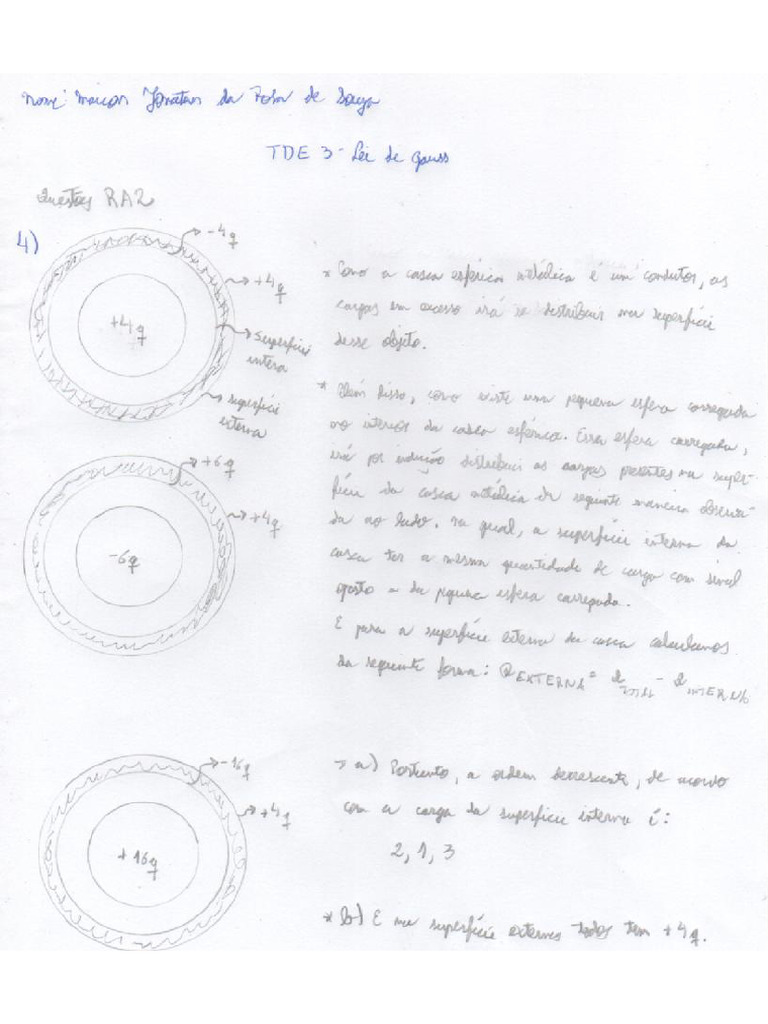 Nome: Marcos Jonatan da Rosa de Souza
TDE 3 - Lei de Gauss
Questões RA2
4)
-4q
+4q
+4q
superfície interna
superfície externa
* Como a casca esférica metálica é um condutor, as
cargas em excesso irá se distribuir na superfície
desse objeto.
* Além disso, como existe uma pequena esfera carregada
no interior da casca esférica. Essa esfera carregada,
irá por indução distribuir as cargas presentes na super-
fície da casca metálica da seguinte maneira observa-
da ao lado. na qual, a superfície interna da
casca ter a mesma quantidade de carga com sinal
oposto a da pequena esfera carregada.
E para a superfície externa da casca calculamos
da seguinte forma: Q EXTERNA = Q TOTAL - Q INTERNA
+6q
+4q
-6q
-16q
+4q
+16q
→ a) Portanto, a ordem decrescente, de acordo
com a carga da superfície interna é:
2, 1, 3
* b) E na superfície externa todos tem +4q.